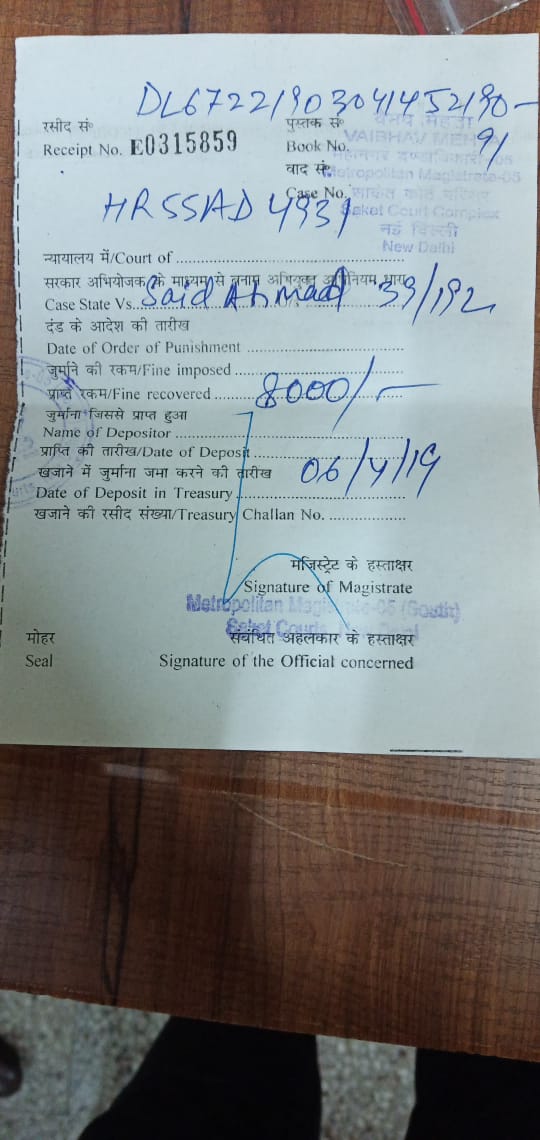 DL67221903041452190-
रसीद सं०
पुस्तक सं०
91
Receipt No. E0315859
Book No.
VAIBHAV MEHTA
वाद सं०
Metropolitan Magistrate-05
Case No.
साकेत कोर्ट परिसर
Saket Court Complex
नई दिल्ली
New Delhi
HR55AD 4931
न्यायालय में/Court of
सरकार अभियोजक के माध्यम से बनाम अभियुक्त अधिनियम धारा
Case State Vs. Said Ahmad 39/192
दंड के आदेश की तारीख
Date of Order of Punishment
जुर्माने की रकम/Fine imposed
प्राप्त रकम/Fine recovered 8000/-
जुर्माना जिससे प्राप्त हुआ
Name of Depositor
प्राप्ति की तारीख/Date of Deposit
खजाने में जुर्माना जमा करने की तारीख 06/4/19
Date of Deposit in Treasury
खजाने की रसीद संख्या/Treasury Challan No.
मजिस्ट्रेट के हस्ताक्षर
Signature of Magistrate
Metropolitan Magistrate-05 (South)
Saket Courts
मोहर
संबंधित अहलकार के हस्ताक्षर
Seal
Signature of the Official concerned